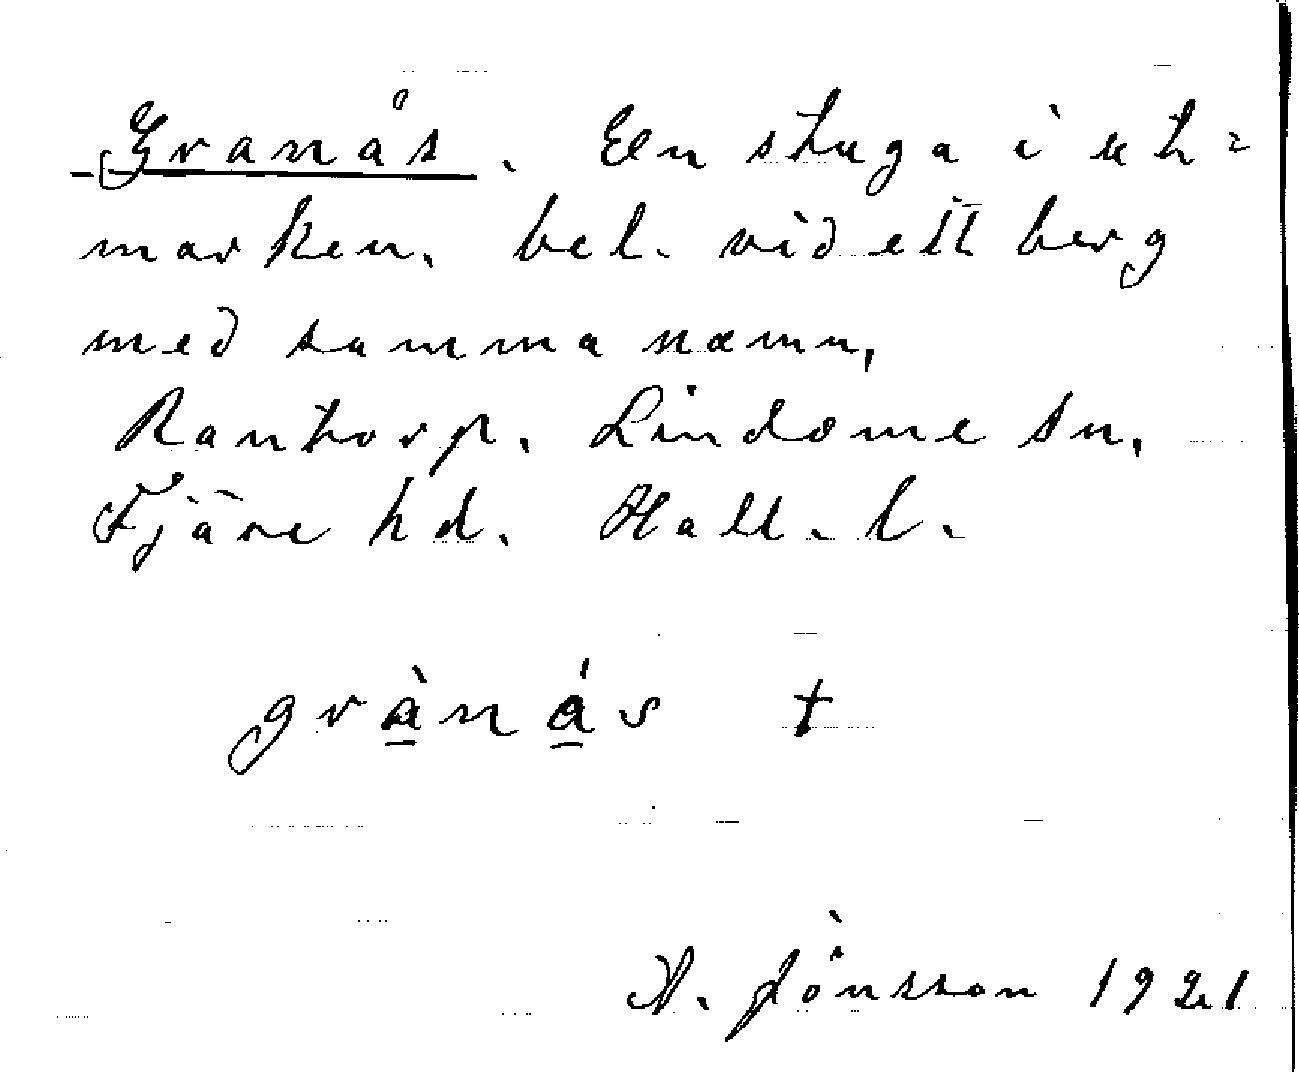 Granås. En stuga i ut=
marken, bel. vid ett berg
med samma namn,
Rantorp. Lindome sn,
Fjäre hd. Hall. l.
grànás †
A. Jönsson 1921